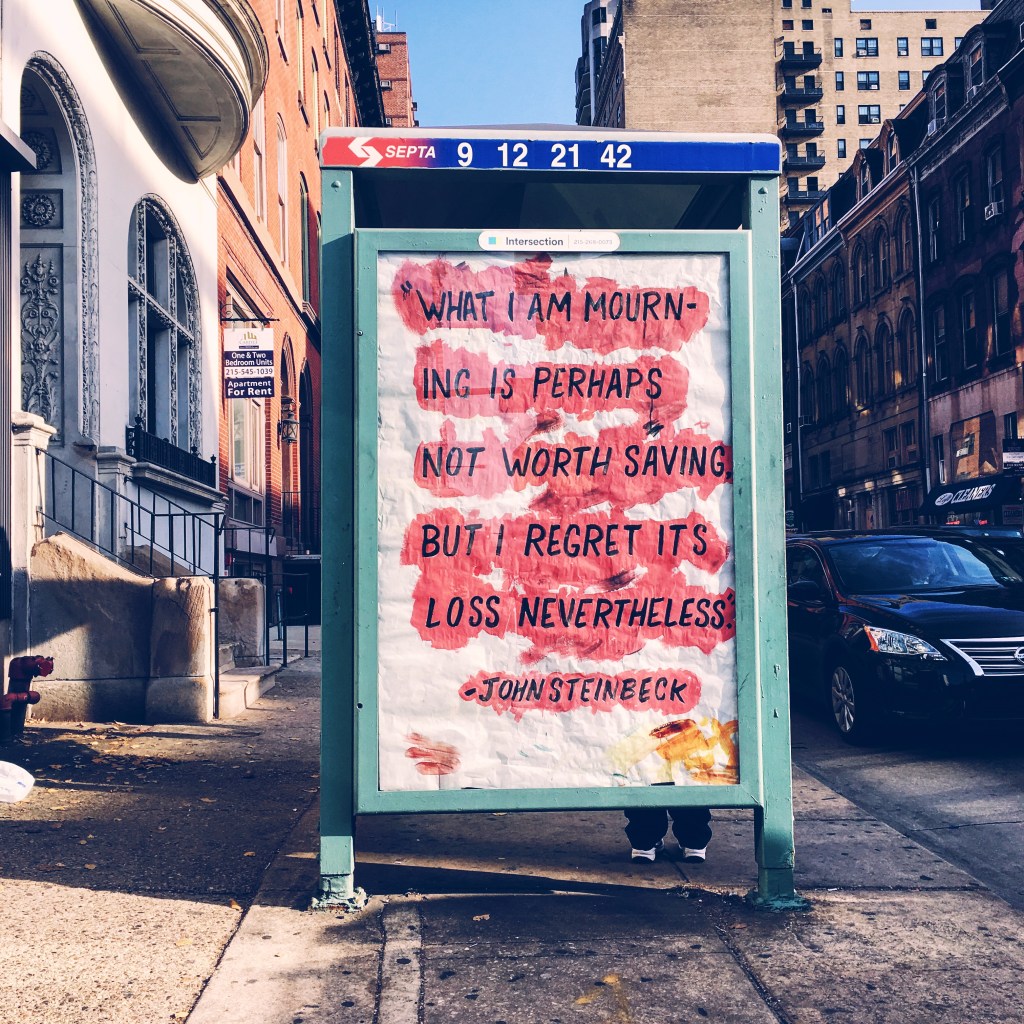 SEPTA 9 12 21 42
Intersection
"WHAT I AM MOURN-
ING IS PERHAPS
NOT WORTH SAVING,
BUT I REGRET ITS
LOSS NEVERTHELESS".
-JOHN STEINBECK
One & Two
Bedroom Units
215-545-1039
Apartment
For Rent
CLEANERS